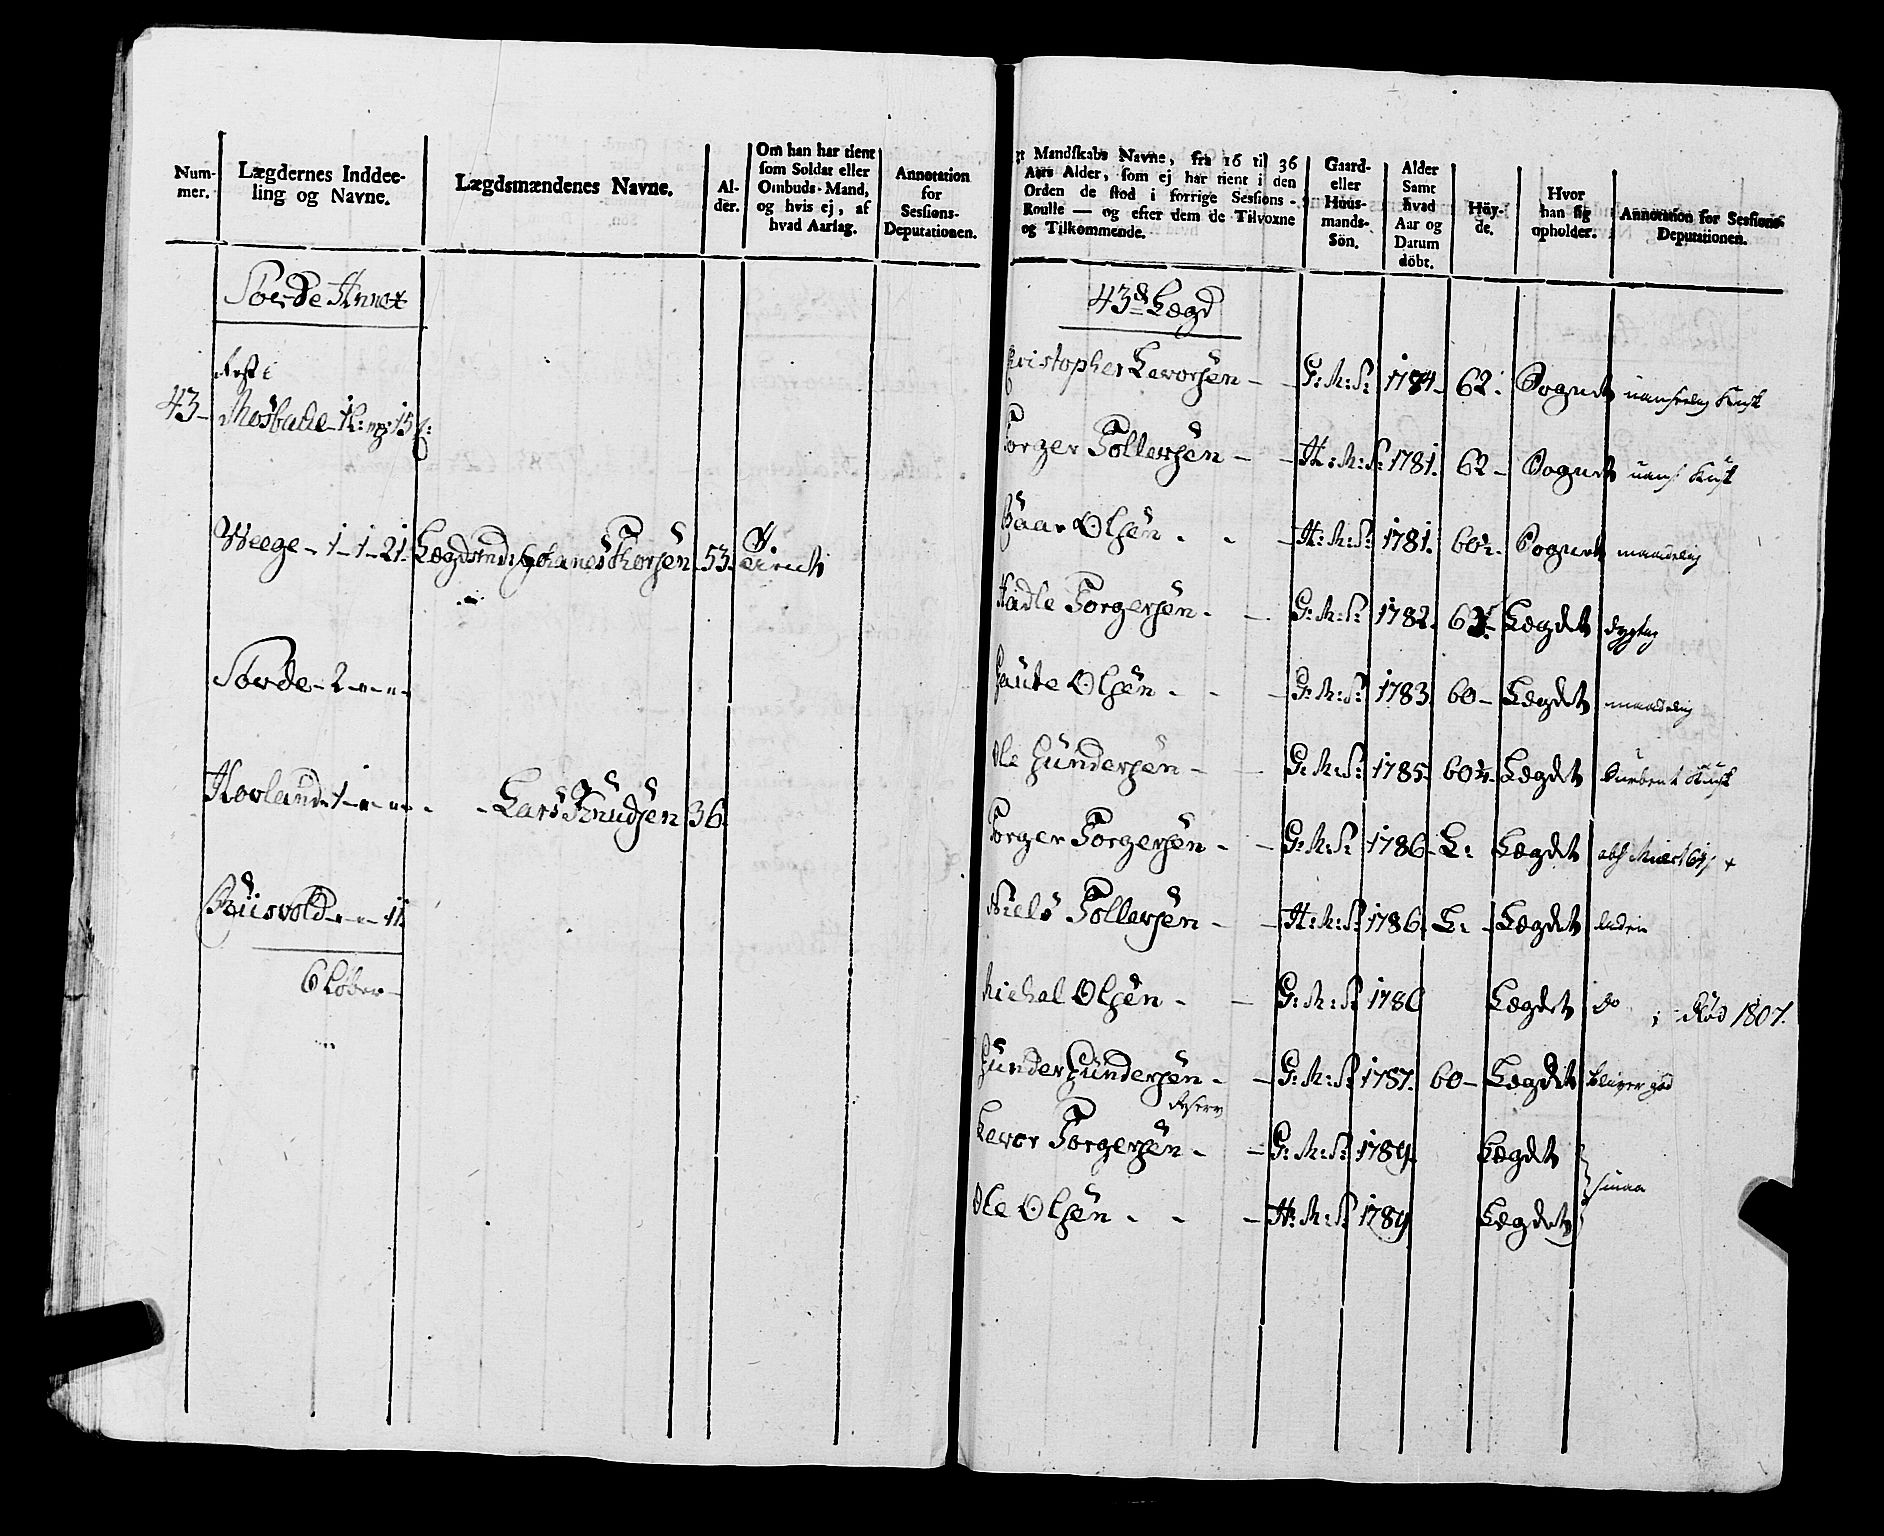 Num-
mer.
Lægdernes Inddee-
ling og Navne.
Lægdsmændenes Navne.
Al-
der.
Om han har tient
som Soldat eller
Ombuds-Mand,
og hvis ej, af
hvad Aarsag.
Annotation
for
Sessions-
Deputationen.
Torde Annex
43-
Weege - 1 - 1 - 21. Lægdsmd: Johanes Thorsen 53.
Torde - 2 - " - "
Hovland - 1 - " - " - Lars Knudsen 36.
6 Løber
Mandskabs Navne, fra 16 til 36
Aars Alder, som ej har tient i den
Orden de stod i forrige Sessions-
Roulle — og efter dem de Tilvoxne
og Tilkommende.
Gaard-
eller
Huus-
mands-
Sön.
Alder
Samt
hvad
Aar og
Datum
döbt.
Höy-
de.
Hvor
han sig
opholder.
Annotation for Sessions-
Deputationen.
43d Lægd
Christopher Levorsen - - G: M: S: 1784 - 62. Sognet
Torger Tollevsen - - H: M: S: 1781. 62 - Sognet
Baar Olsen - - - H: M: S: 1781. 60½ - Sognet maadelig
Hadle Torgersen - - G: M: S: 1782. Lægdet dygtig
Gaute Olsen - - - G: M: S: 1783. 60 - Lægdet maadelig
Ole Gundersen - - G: M: S: 1785. Lægdet
Torger Torgersen - - G: M: S: 1786 - L: Lægdet
Niels Tollevsen - - H: M: S: 1786. L: - Lægdet liden
Michal Olsen - - G: M: S: 1786 Lægdet do död 1807.
Gunder Gundersen - - G: M: S: 1787. 60 - Lægdet bliver god
Reserv
Levor Torgersen - - G: M: S: 1789. Lægdet
smaa
Ole Olsen - - - H: M: S: 1789 Lægdet